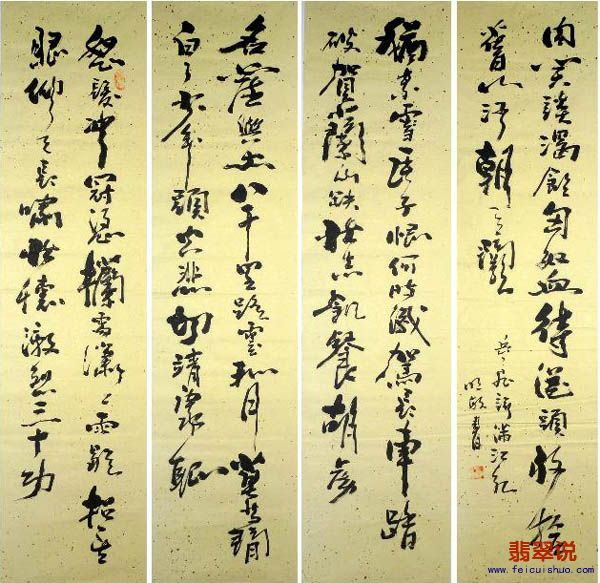 怒髮衝冠憑欄處瀟々雨歇抬望
眼仰天長嘯壯懷激烈三十功
名塵與土八千里路雲和月莫等閒
白了少年頭空悲切靖康恥
猶未雪臣子恨何時滅駕長車踏
破賀蘭山缺壯志飢餐胡虜
肉笑談渴飲匈奴血待從頭收拾
舊山河朝天闕
岳飛詞滿江紅
書
翡翠说
www.feicuishuo.com